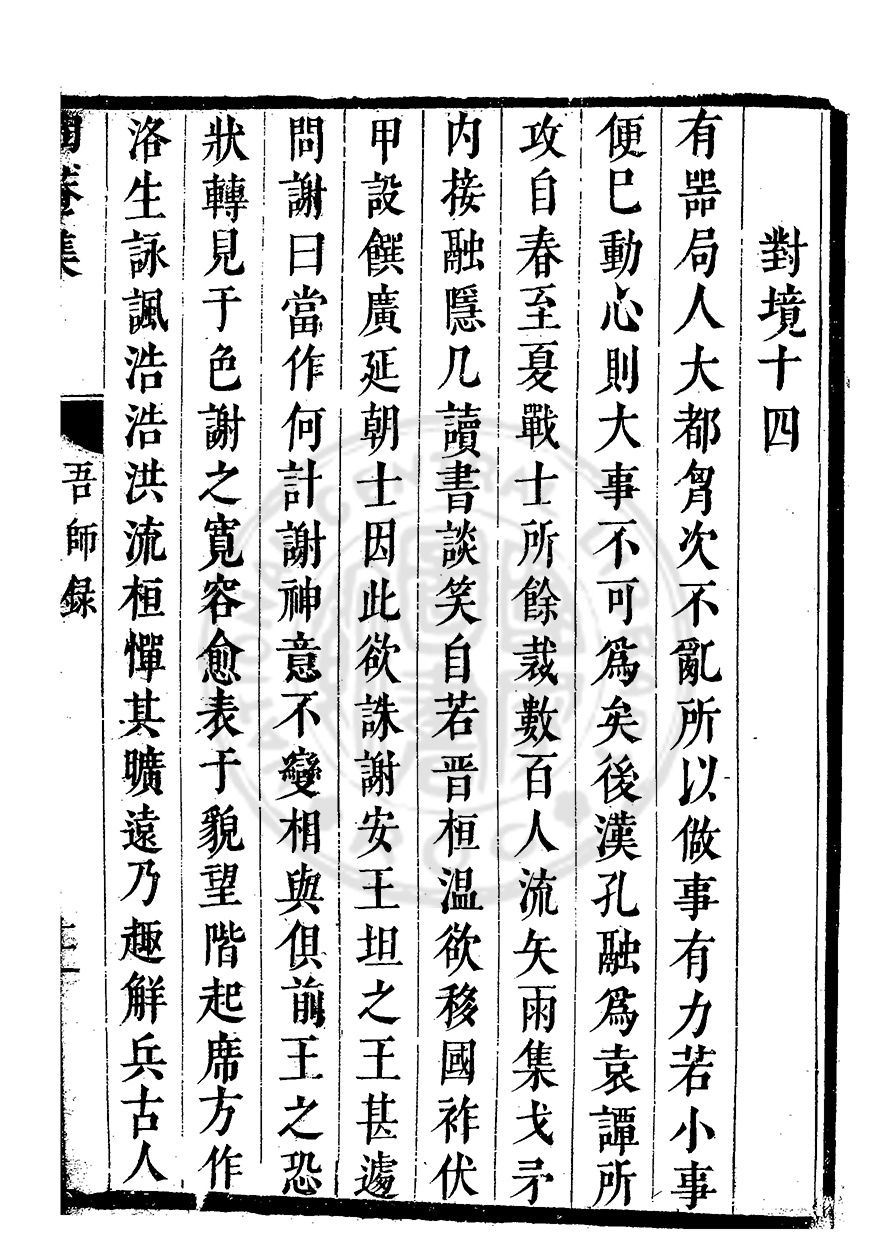 對境十四
有器局人大都胷次不亂所以做事有力若小事
便巳動心則大事不可爲矣後漢孔融爲袁譚所
攻自春至夏戰士所餘裁數百人流矢雨集戈矛
内接融隱几讀書談笑自若晋桓温欲移國祚伏
甲設饌廣延朝士因此欲誅謝安王坦之王甚遽
問謝曰當作何計謝神意不變相與俱前王之恐
狀轉見于色謝之寛容愈表于貌望階起席方作
洛生詠諷浩浩洪流桓憚其曠遠乃趣觧兵古人
吾師録